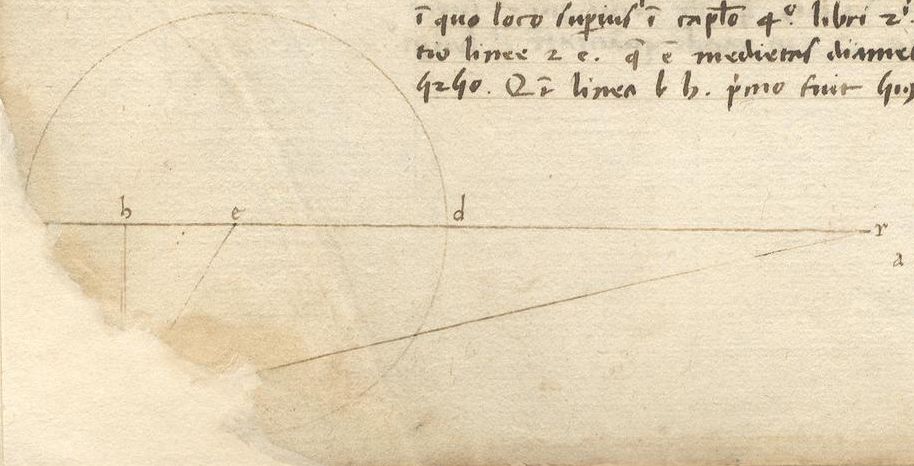 ī quo loco supius ī caplo 4º. libri 2ⁱ.
tio linee z e. q̄ ē medietas diame
linea b h. pͥmo fuit
h e d
r
a